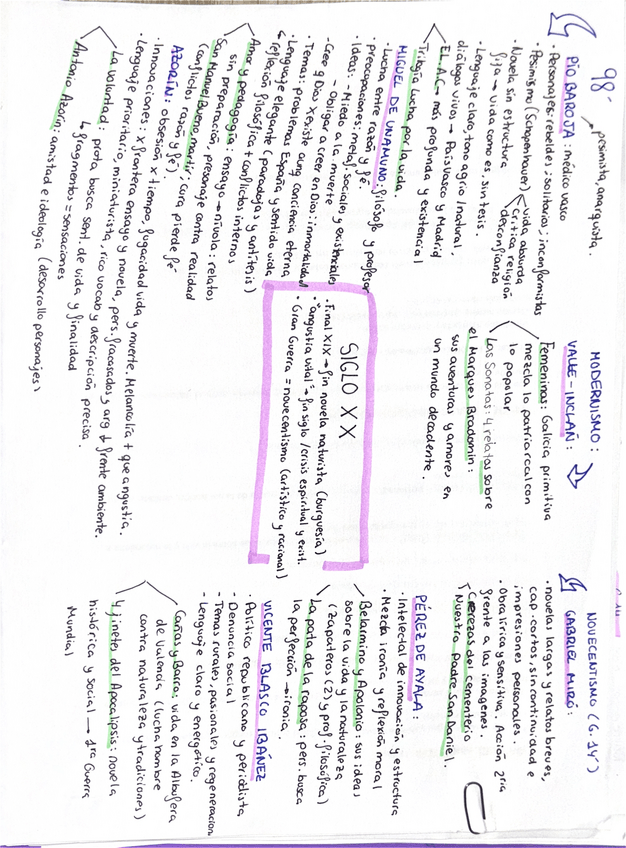 98-
→ pesimista, anarquista.
PÍO BAROJA: médico vasco
· Personajes: rebeldes; solitarios; inconformistas
· Pesimismo (Schopenhauer) < vida absurda
Crítica religión
desconfianza
· Novela sin estructura
fija → vida como es, sin tesis.
· Lenguaje claro, tono agrio/natural,
diálogos vivos → País Vasco y Madrid
EL.A.C → más profunda y existencial
Trilogía Lucha por la vida.
MIGUEL DE UNAMUNO: filósofo y profesor
· Lucha entre razón y fé.
preocupaciones: metaf. sociales y existenciales
· Ideas: - Miedo a la muerte
- Obligar a creer en Dios: inmortalidad
- Cree q Dios x existe aunq conciencia eterna
· Temas: problemas España y sentido vida
· Lenguaje elegante (paradojas y antítesis)
↳ reflexión filosófica + conflictos internos
Amor y pedagogía: ensayo → nivola: relatos
sin preparación, personaje contra realidad
San Manuel Bueno, martir: cura pierde fé
(conflictos razón y fé).
AZORÍN: obsesión x tiempo, fugacidad vida y muerte. Melancolía + que angustia.
· Innovaciones: x frontera ensayo y novela, pers. fracasados y arg ↓ frente ambiente.
· Lenguaje prioritario, miniaturista, rico vocab y descripción precisa.
La Voluntad: prota busca sent. de vida y finalidad
↳ fragmentos = sensaciones
Antonio Azorín: amistad e ideología (desarrollo personajes)
MODERNISMO:
VALLE-INCLAÑ:
Femeninas: Galicia primitiva
mezcla lo patriarcal con
lo popular
Las Sonatas: 4 relatos sobre
el Marques Bradomin:
sus aventuras y amores en
un mundo decadente.
SIGLO XX
· Final XIX → fin novela naturista (burguesía)
· "angustia vital" → fin siglo/crisis espiritual y exist.
· Gran Guerra = novecentismo (artístico y racional)
NOVECENTISMO (G.14)
GABRIEL MIRÓ:
· novelas largas y relatos breves,
cap. cortos, sin continuidad e
impresiones personales
· Obra lírica y sensitiva. Acción 2ria
frente a las imagenes.
Cerezas del cementerio
Nuestro Padre San Daniel.
PÉREZ DE AYALA:
· Intelectal de innovación y estructura
· Mezcla ironía y reflexión moral
Belarmino y Apolonio: sus ideas
sobre la vida y la naturaleza
(zapateros (2) y prof. filosófica)
La pata de la raposa: pers. busca
la perfección → ironía.
VICENTE BLASCO IBAÑEZ
· Político republicano y periodista
- Denuncia social
- Temas rurales, pasionales y regeneracion
- Lenguaje claro y energético.
Cañas y Barro: vida en la Albufera
de Valencia (lucha hombre
contra naturaleza y tradiciones)
4 jinetes del Apocalipsis: novela
histórica y social → 1ra Guerra
Mundial